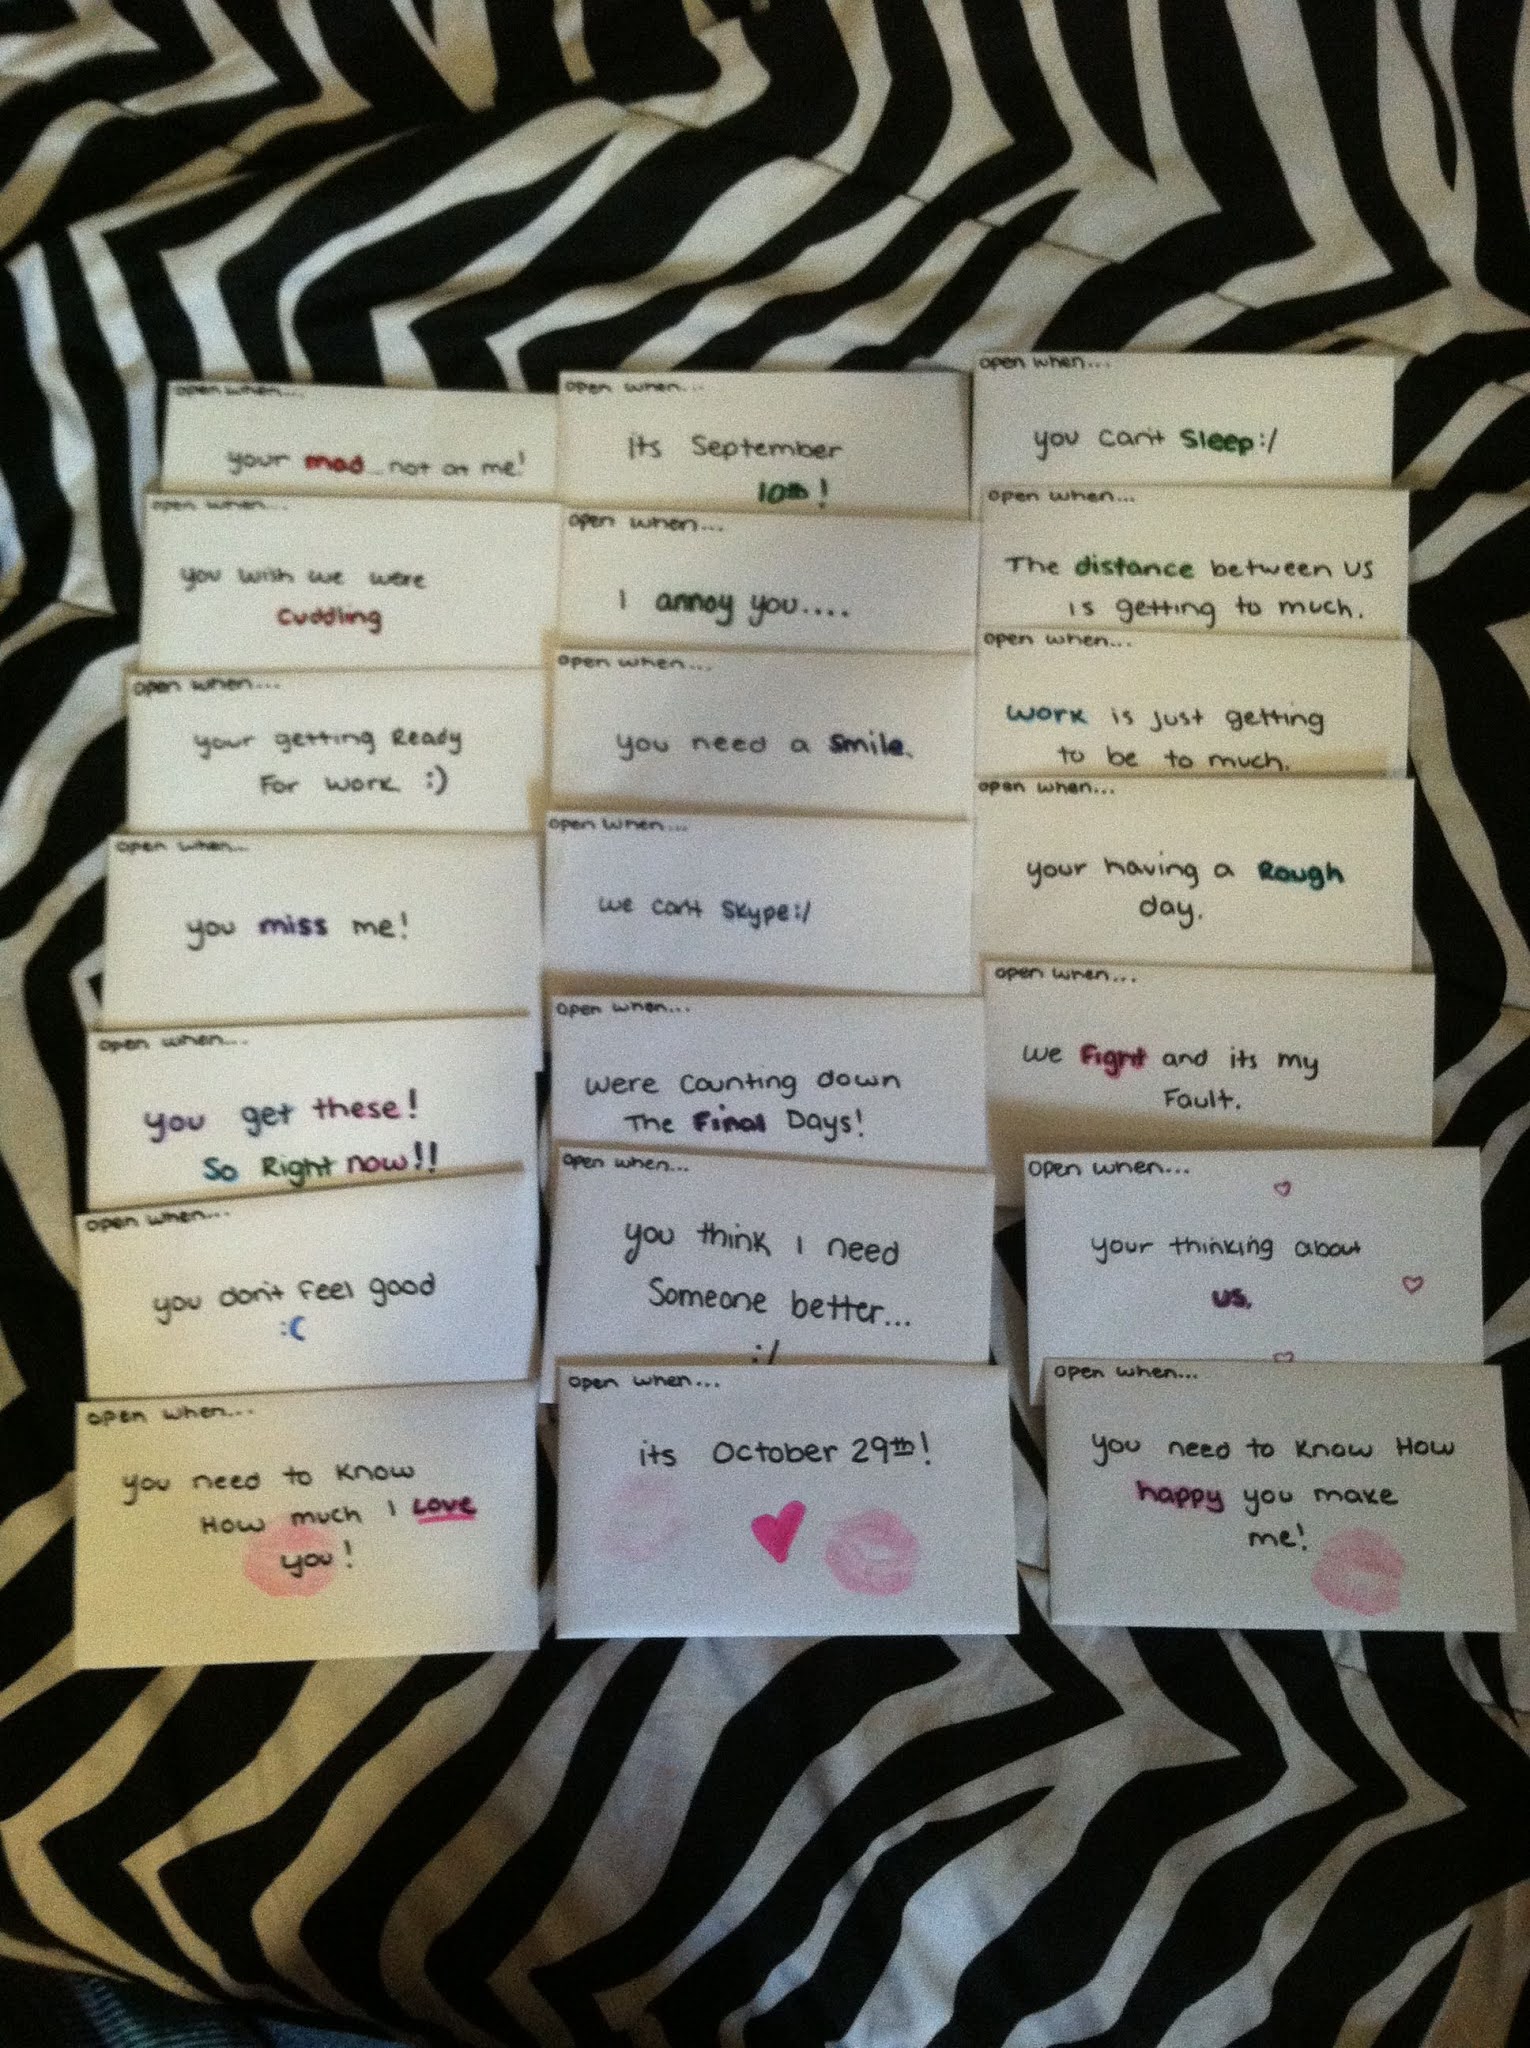 open when...
your mad not at me!
open when...
you wish we were
cuddling
open when...
your getting Ready
For work :)
open when...
you miss me!
open when...
you get these!
So Right now!!
open when...
you don't feel good
:(
open when...
you need to know
How much I Love
you!
open when...
its September
10th!
open when...
I annoy you....
open when...
you need a smile.
open when...
we can't Skype:/
open when...
were counting down
The Final Days!
open when...
you think I need
Someone better...
:/
open when...
its October 29th!
open when...
you can't Sleep:/
open when...
The distance between us
is getting to much.
open when...
work is just getting
to be to much.
open when...
your having a Rough
day.
open when...
we Fight and its my
Fault.
open when...
your thinking about
us.
open when...
you need to know How
happy you make
me!